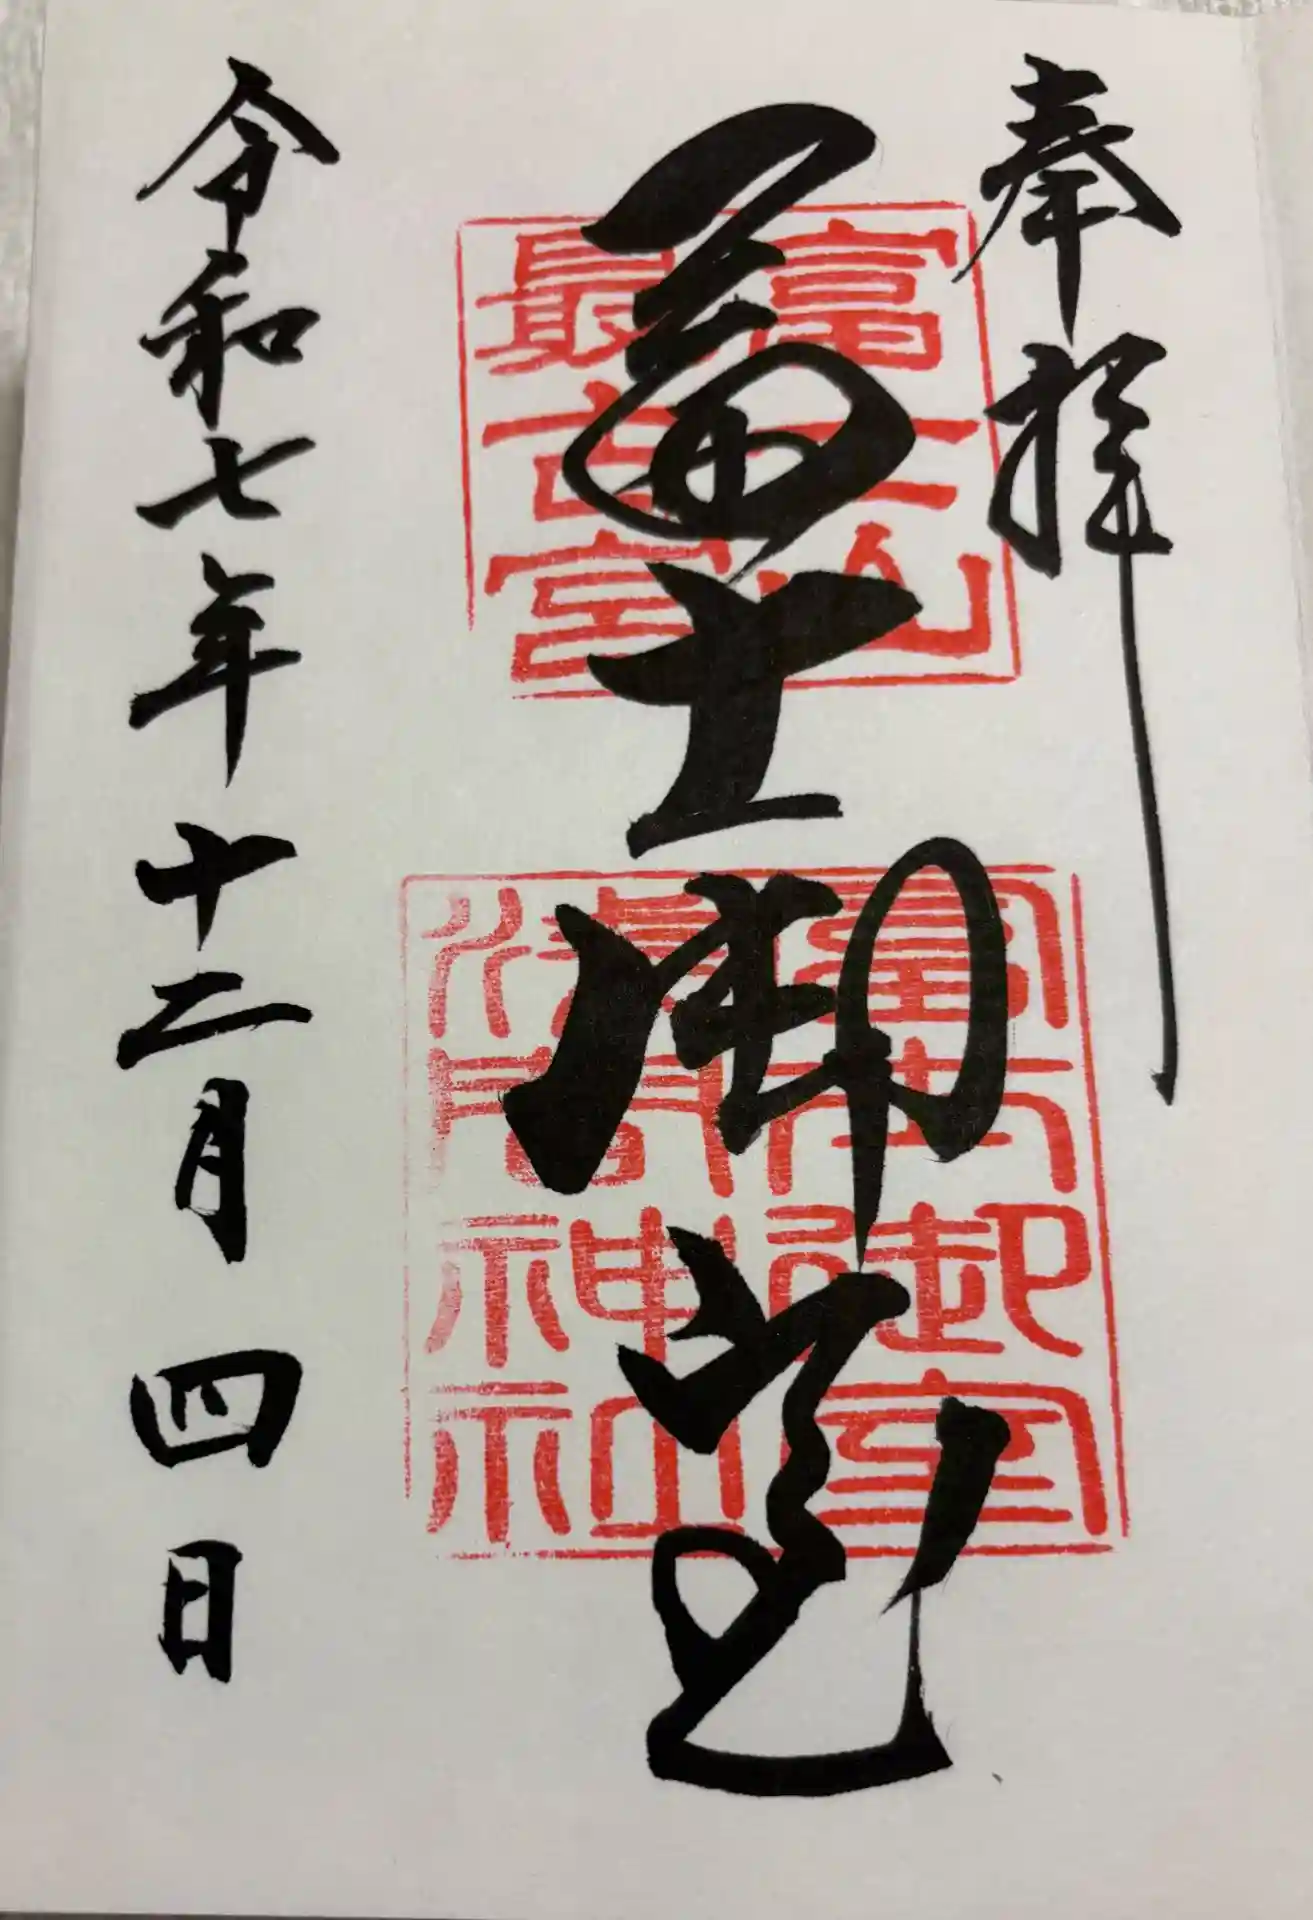 奉拝
冨士御室
富士山
最古宮
富士御室
浅間神社
令和七年十二月四日